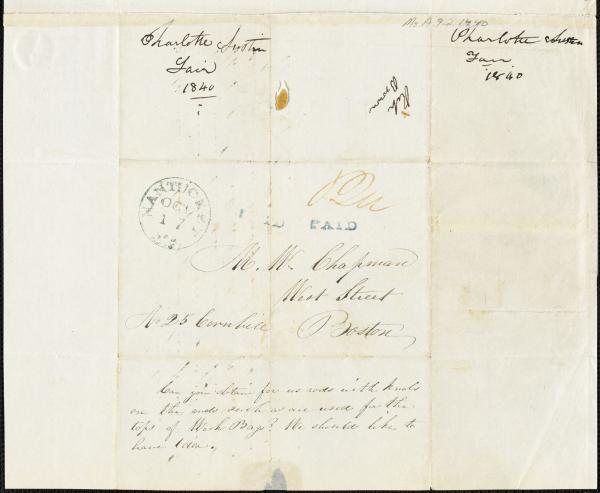 Ms. A.9.2.
Charlotte Austin
Fair
1840
Charlotte Austin
Fair
1840
NANTUCKET
OCT
17
PAID PAID
M. W. Chapman
West Street
No 25 Cornhill
Boston
Can you obtain for us rods with knobs
on the ends such as are used for the
tops of Work Bags? We should like to
have 1 doz.